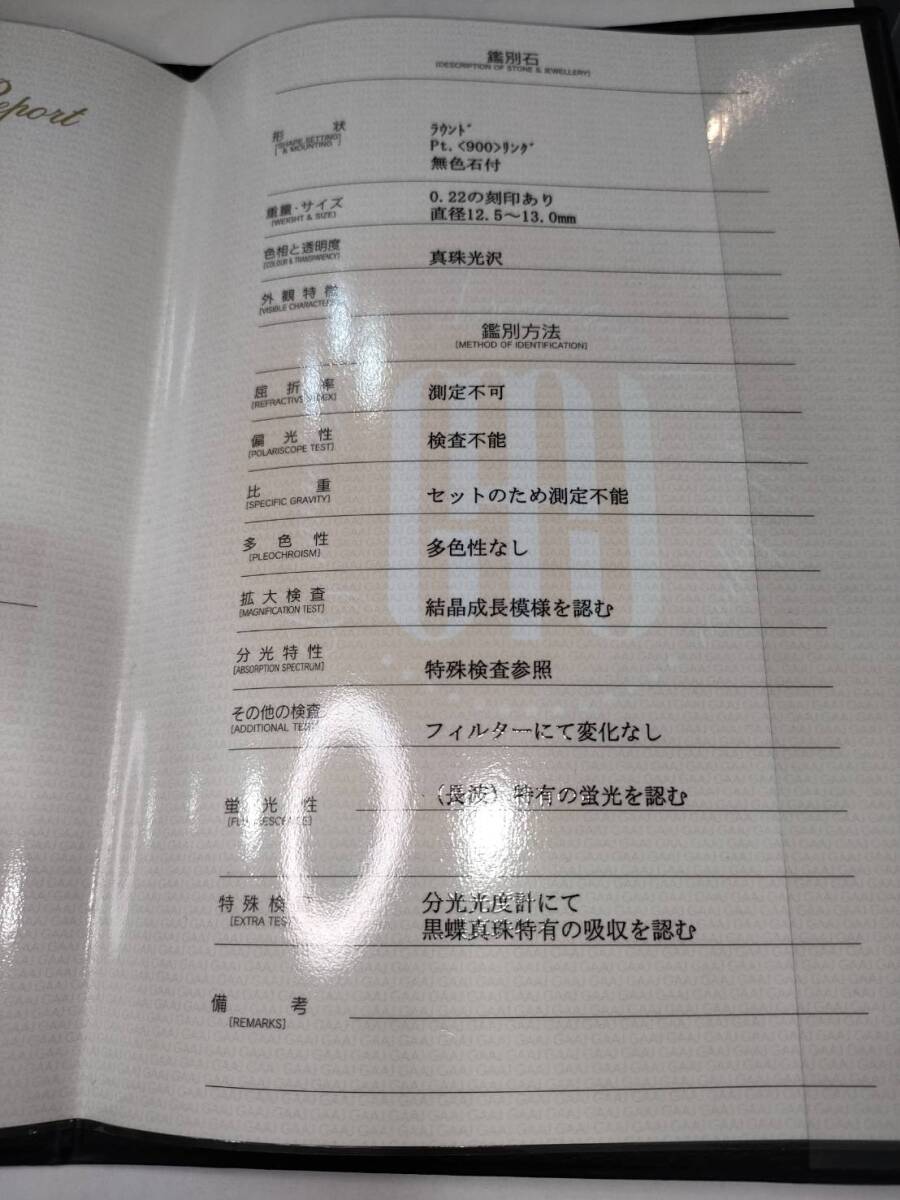 Report
鑑別石
[DESCRIPTION OF STONE & JEWELLERY]
形状
[SHAPE SETTING & MOUNTING]
ﾗｳﾝﾄﾞ
Pt.<900>ﾘﾝｸﾞ
無色石付
重量・サイズ
[WEIGHT & SIZE]
0.22の刻印あり
直径12.5～13.0mm
色相と透明度
[COLOUR & TRANSPARENCY]
真珠光沢
外観特徴
[VISIBLE
鑑別方法
[METHOD OF IDENTIFICATION]
屈折率
[REFRACTIVE INDEX]
測定不可
偏光性
[POLARISCOPE TEST]
検査不能
比重
[SPECIFIC GRAVITY]
セットのため測定不能
多色性
[PLEOCHROISM]
多色性なし
拡大検査
[MAGNIFICATION TEST]
結晶成長模様を認む
分光特性
[ABSORPTION SPECTRUM]
特殊検査参照
その他の検査
[ADDITIONAL TEST]
フィルターにて変化なし
蛍光性
[FLUORESCENCE]
(長波) 特有の蛍光を認む
特殊検
[EXTRA TEST]
分光光度計にて
黒蝶真珠特有の吸収を認む
備考
[REMARKS]